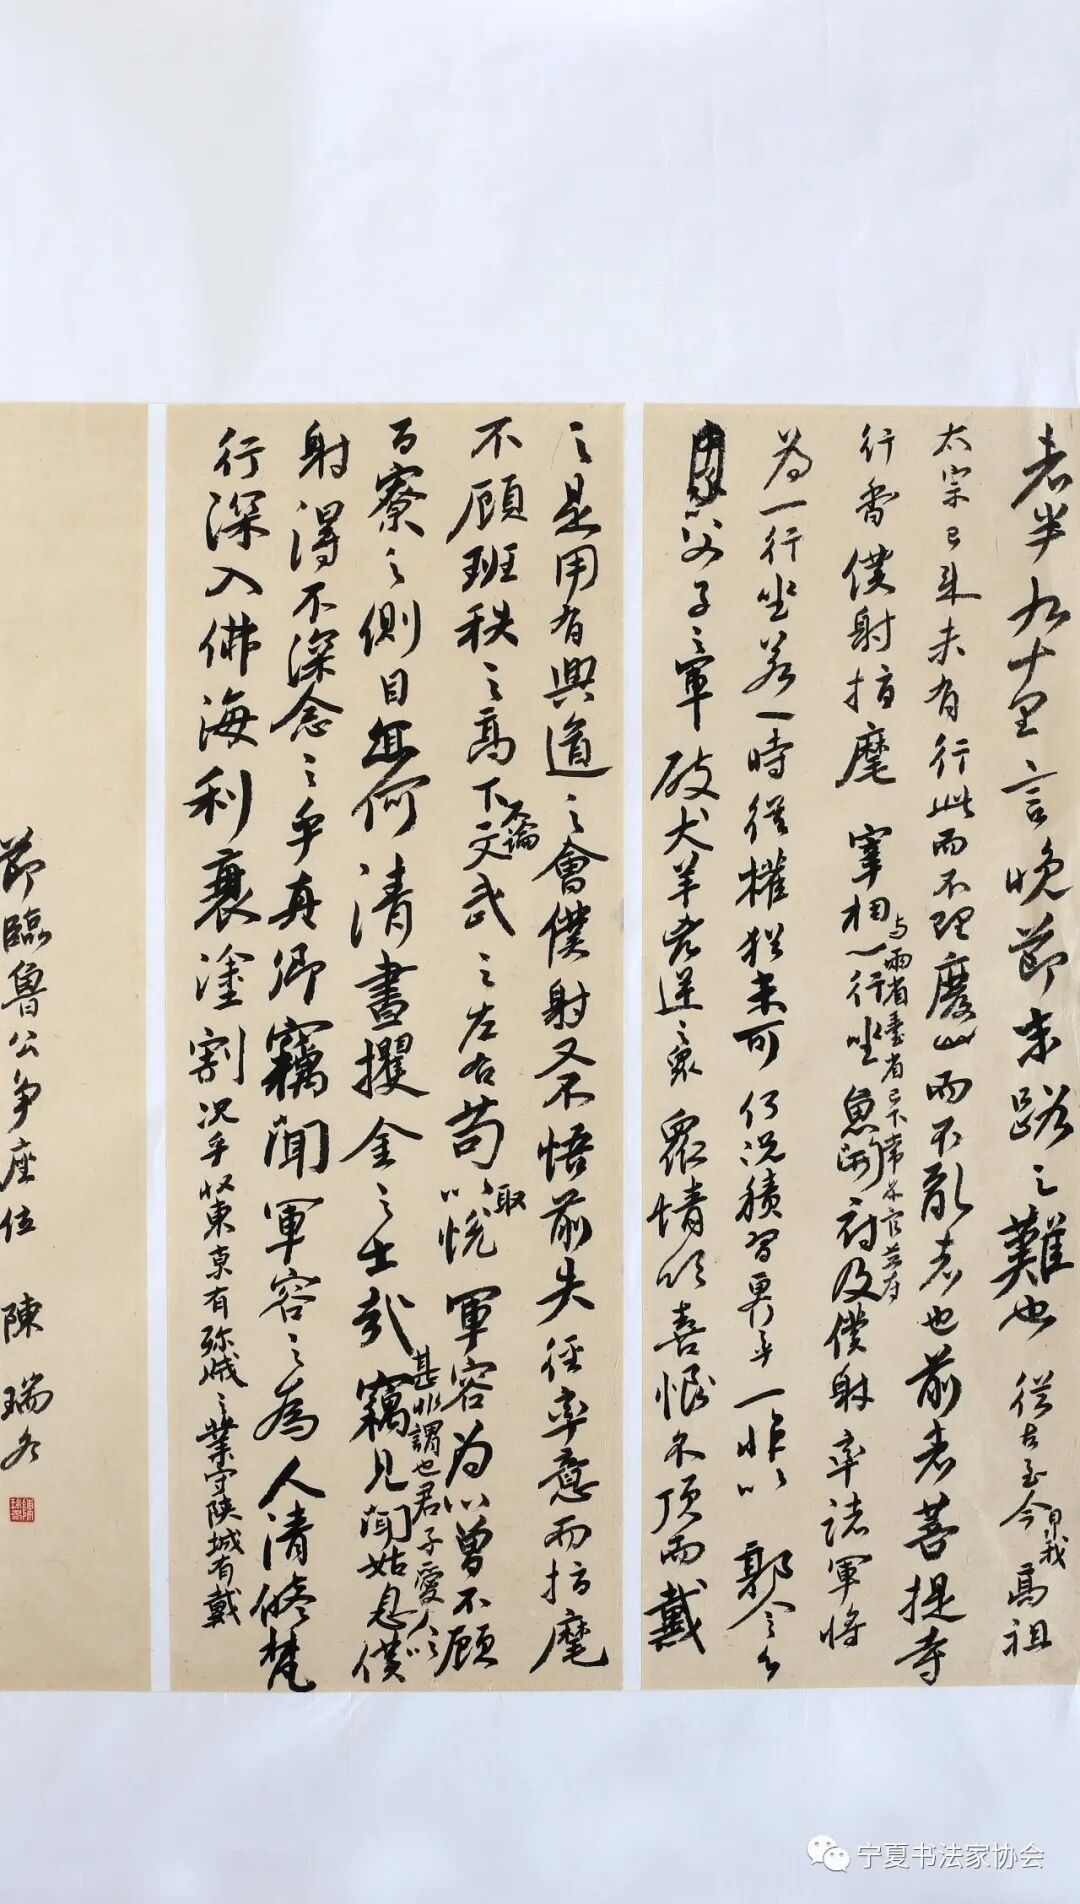 者半九十里言晚節末路之難也從古至今日我高祖
太宗已來未有行此而不理廢此而不亂者也前者菩提寺
行香僕射指麾宰相與兩省臺省已下常參官並為一行坐魚開府及僕射率諸軍將
為一行坐若一時從權猶未可仍況積習更行乎一昨以郭令公
父子之軍破犬羊兇逆之眾眾情欣喜恨不頂而戴
之是用有興道之會僕射又不悟前失徑率意而指麾
不顧班秩之高下不論文武之左右苟以取悅軍容為心曾不顧
百寮之側目亦何清晝攫金之士哉甚非謂也君子愛人以竊見聞姑息僕
射得不深念之乎真卿竊聞軍容之為人清修梵
行深入佛海利衰塗割況乎收東京有殄賊之業守陝城有戴
節臨魯公爭座位 陳瑞
宁夏书法家协会